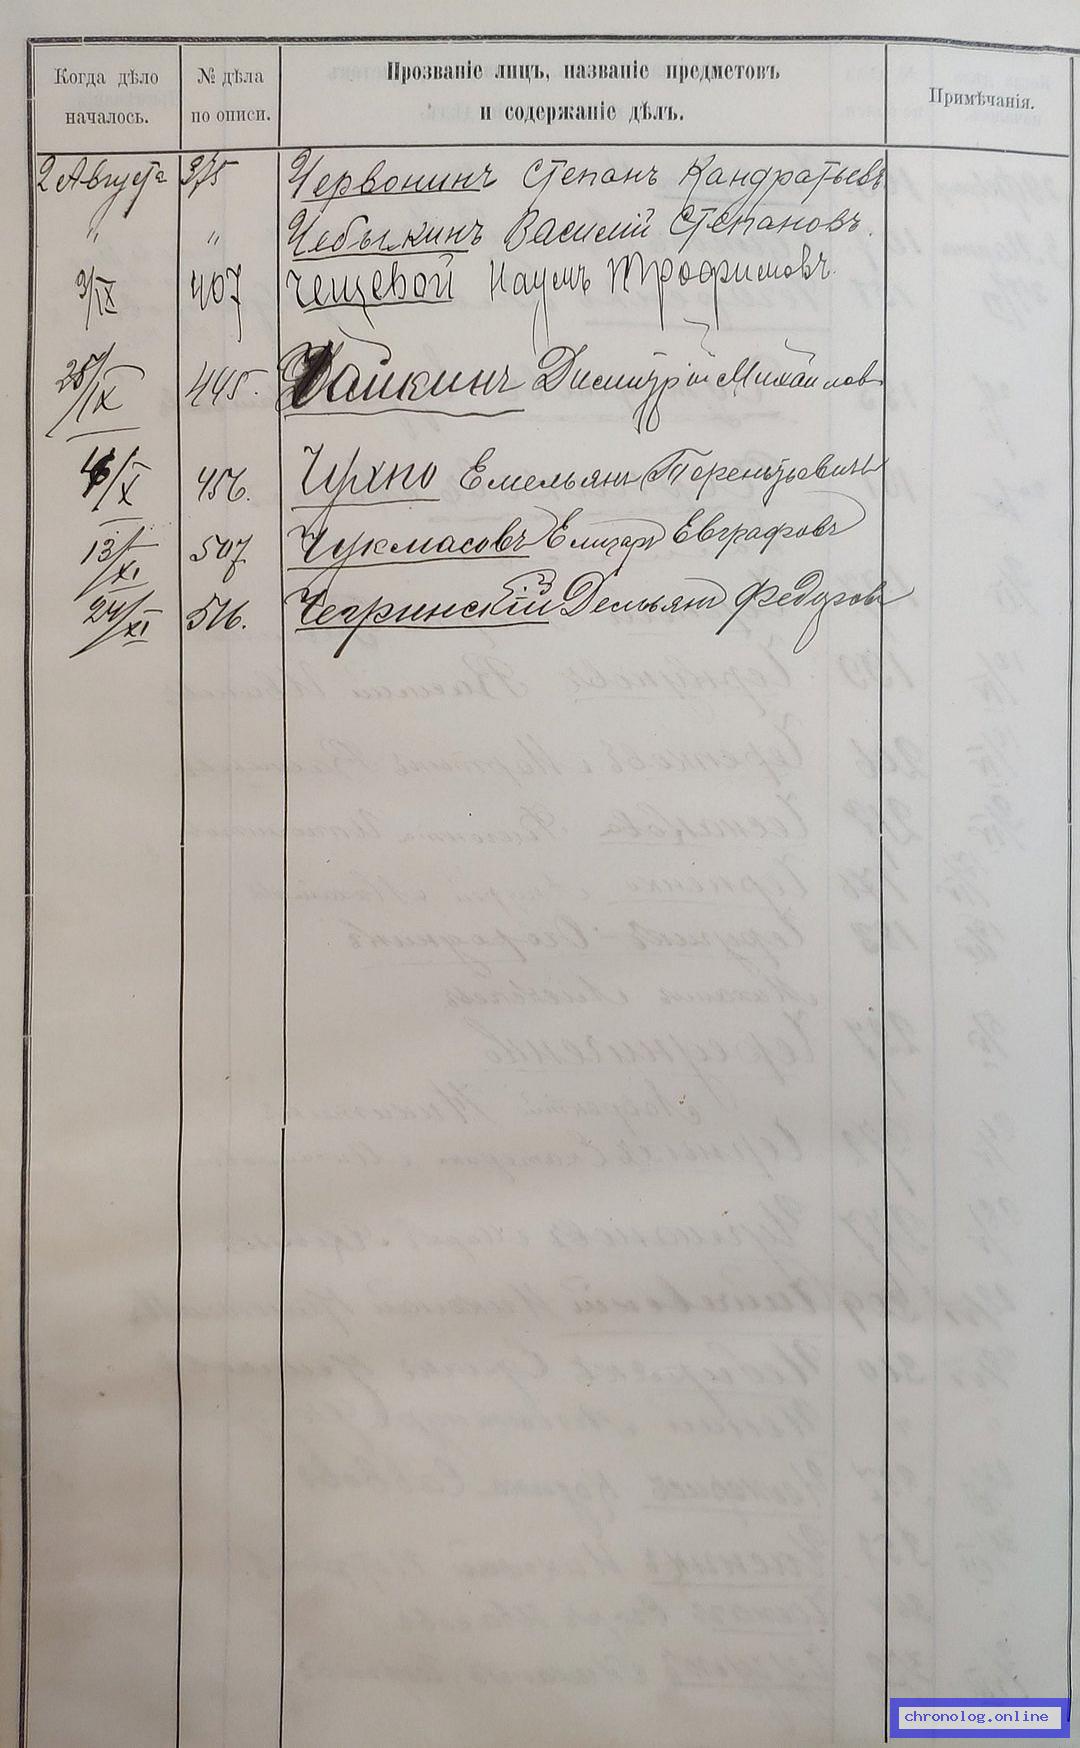 Когда дѣло началось.
№ дѣла по описи.
Прозваніе лицъ, названіе предметовъ
и содержаніе дѣлъ.
Примѣчанія.
2 Августа 375 Червонинъ Степанъ Кандратьевъ
" " Чебыкинъ Василій Степановъ.
3/IX 407 Чещевой Наумъ Трофимовъ.
25/IX 445. Чайкинъ Димитрій Михайлов
4/X 456. Чухно Емельянъ Терентьевичъ
13/XI 507 Чукмасовъ Елизаръ Евграфовъ
24/XI 516. Чегринскій Демьянъ Федоров
chronolog.online